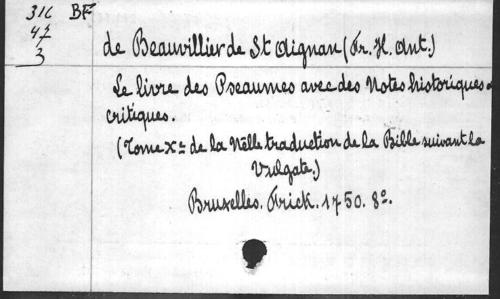 316 BF
47
3
de Beauvillier de St Aignan (Fr. H. Ant.)
Le livre des Pseaumes avec des Notes historiques
critiques.
(Tome Xe de la Nelle traduction de la Bible suivant la
Vulgate.)
Bruxelles. Frick. 1750. 8o.